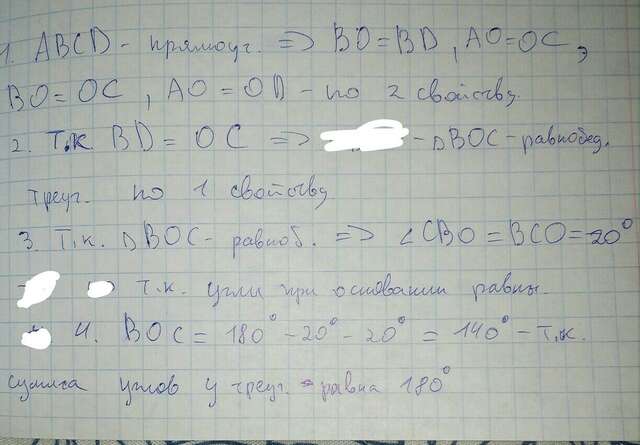 1. ABCD - прямоуг. => BO = BD, AO = OC,
BO = OC, AO = OD - по 2 свойству.
2. Т.к BD = OC => - △BOC - равнобед.
треуг. по 1 свойству
3. Т.к. △BOC - равноб. => ∠CBO = BCO = 20°
т.к. углы при основании равны.
4. BOC = 180° - 20° - 20° = 140° - т.к.
сумма углов у треуг. - равна 180°